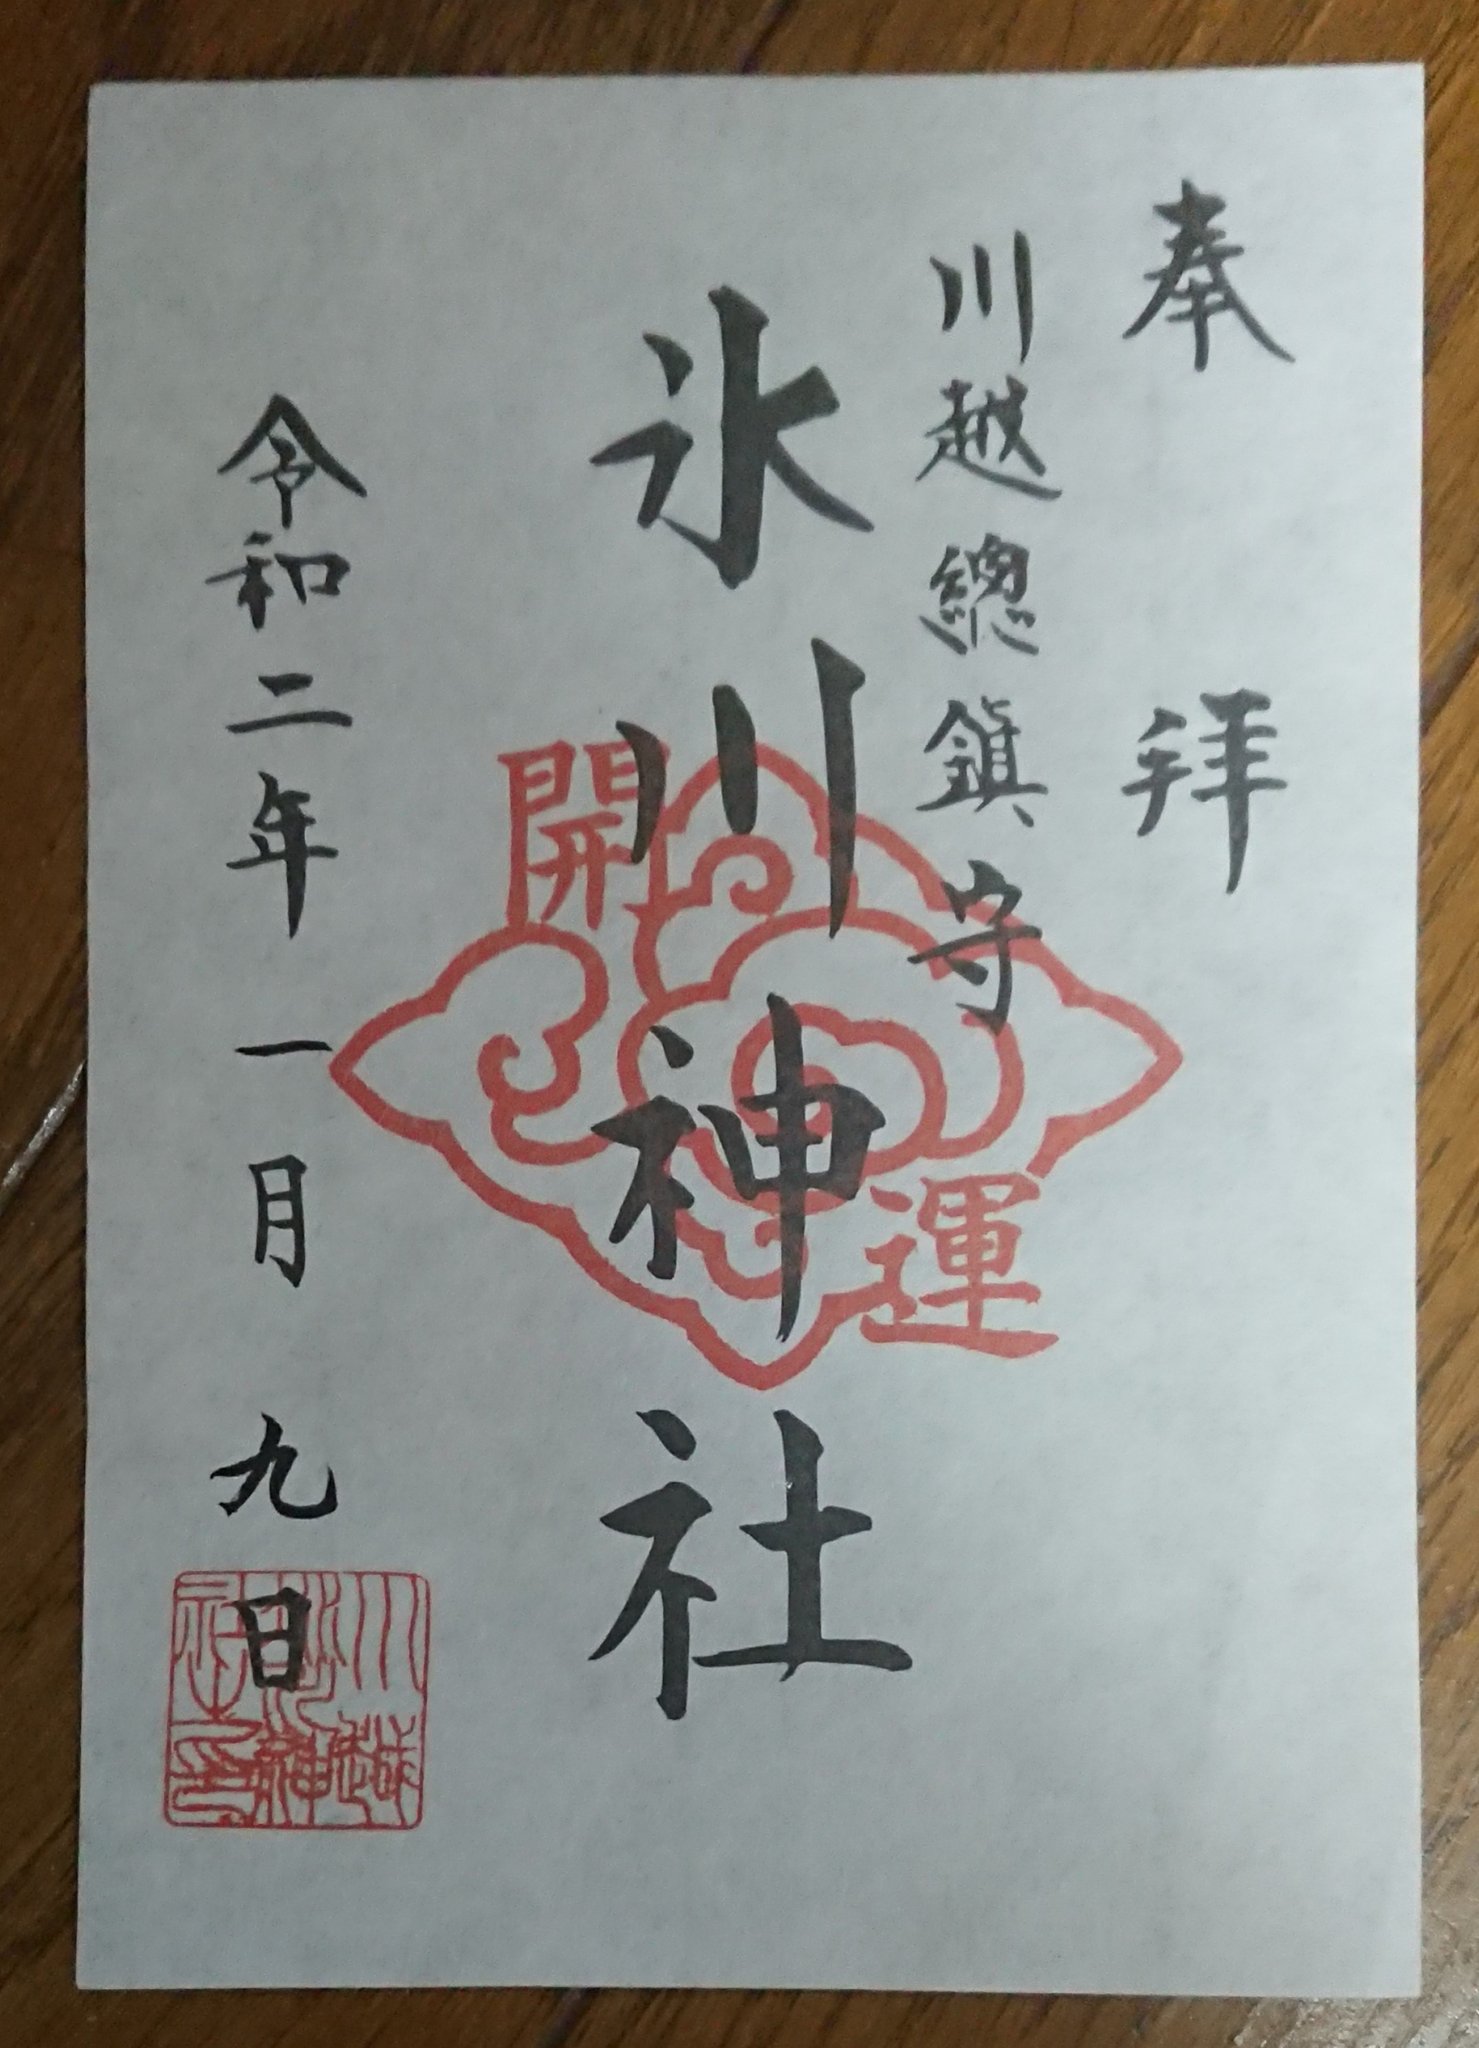 奉拝
川越總鎮守
氷川神社
開運
令和二年一月九日
川越氷川神社之印